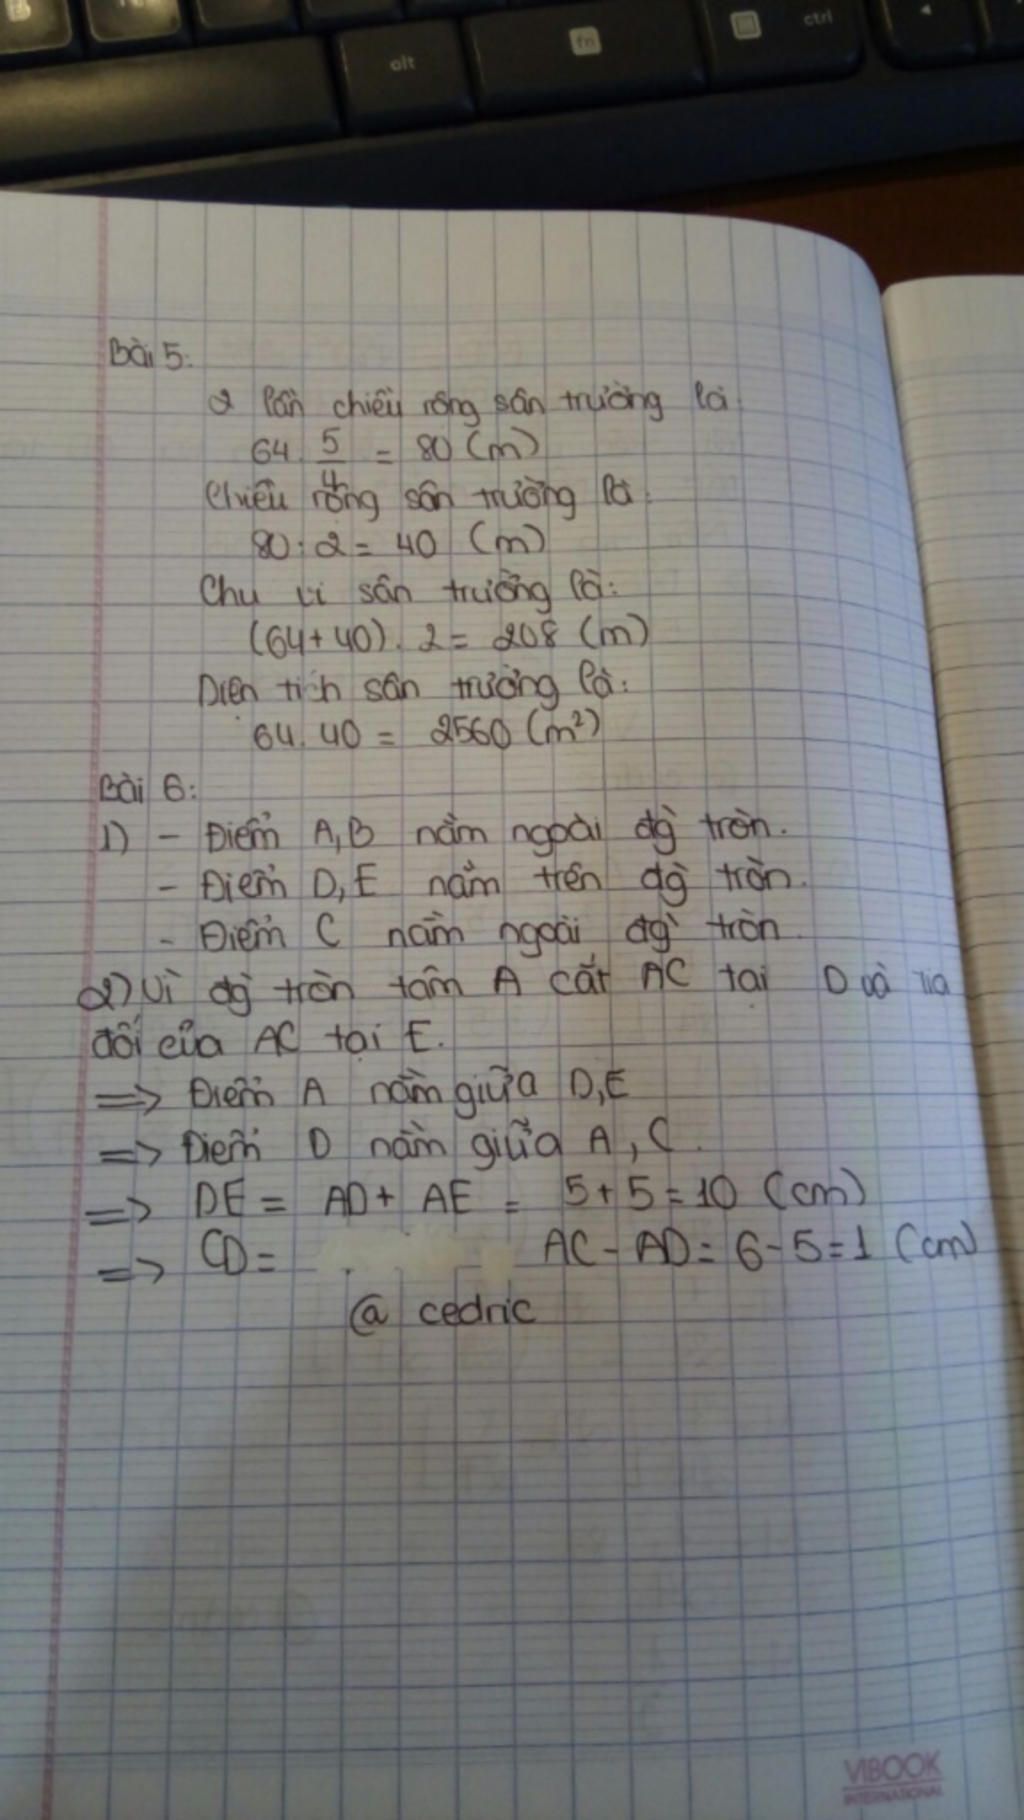 alt
fn
ctrl
Bài 5:
2 lần chiều rộng sân trường là
64. 5/4 = 80 (m)
Chiều rộng sân trường là:
80:2 = 40 (m)
Chu vi sân trường là:
(64+40). 2 = 208 (m)
Diện tích sân trường là:
64. 40 = 2560 (m²)
Bài 6:
1) - Điểm A,B nằm ngoài đg tròn.
- Điểm D,E nằm trên đg tròn.
- Điểm C nằm ngoài đg tròn
2) Vì đg tròn tâm A cắt AC tại D và tia
đối của AC tại E.
=> Điểm A nằm giữa D,E
=> Điểm D nằm giữa A, C.
=> DE = AD + AE = 5+5=10 (cm)
=> CD = AC - AD = 6-5=1 (cm)
@ cedric
VIBOOK
INTERNATIONAL